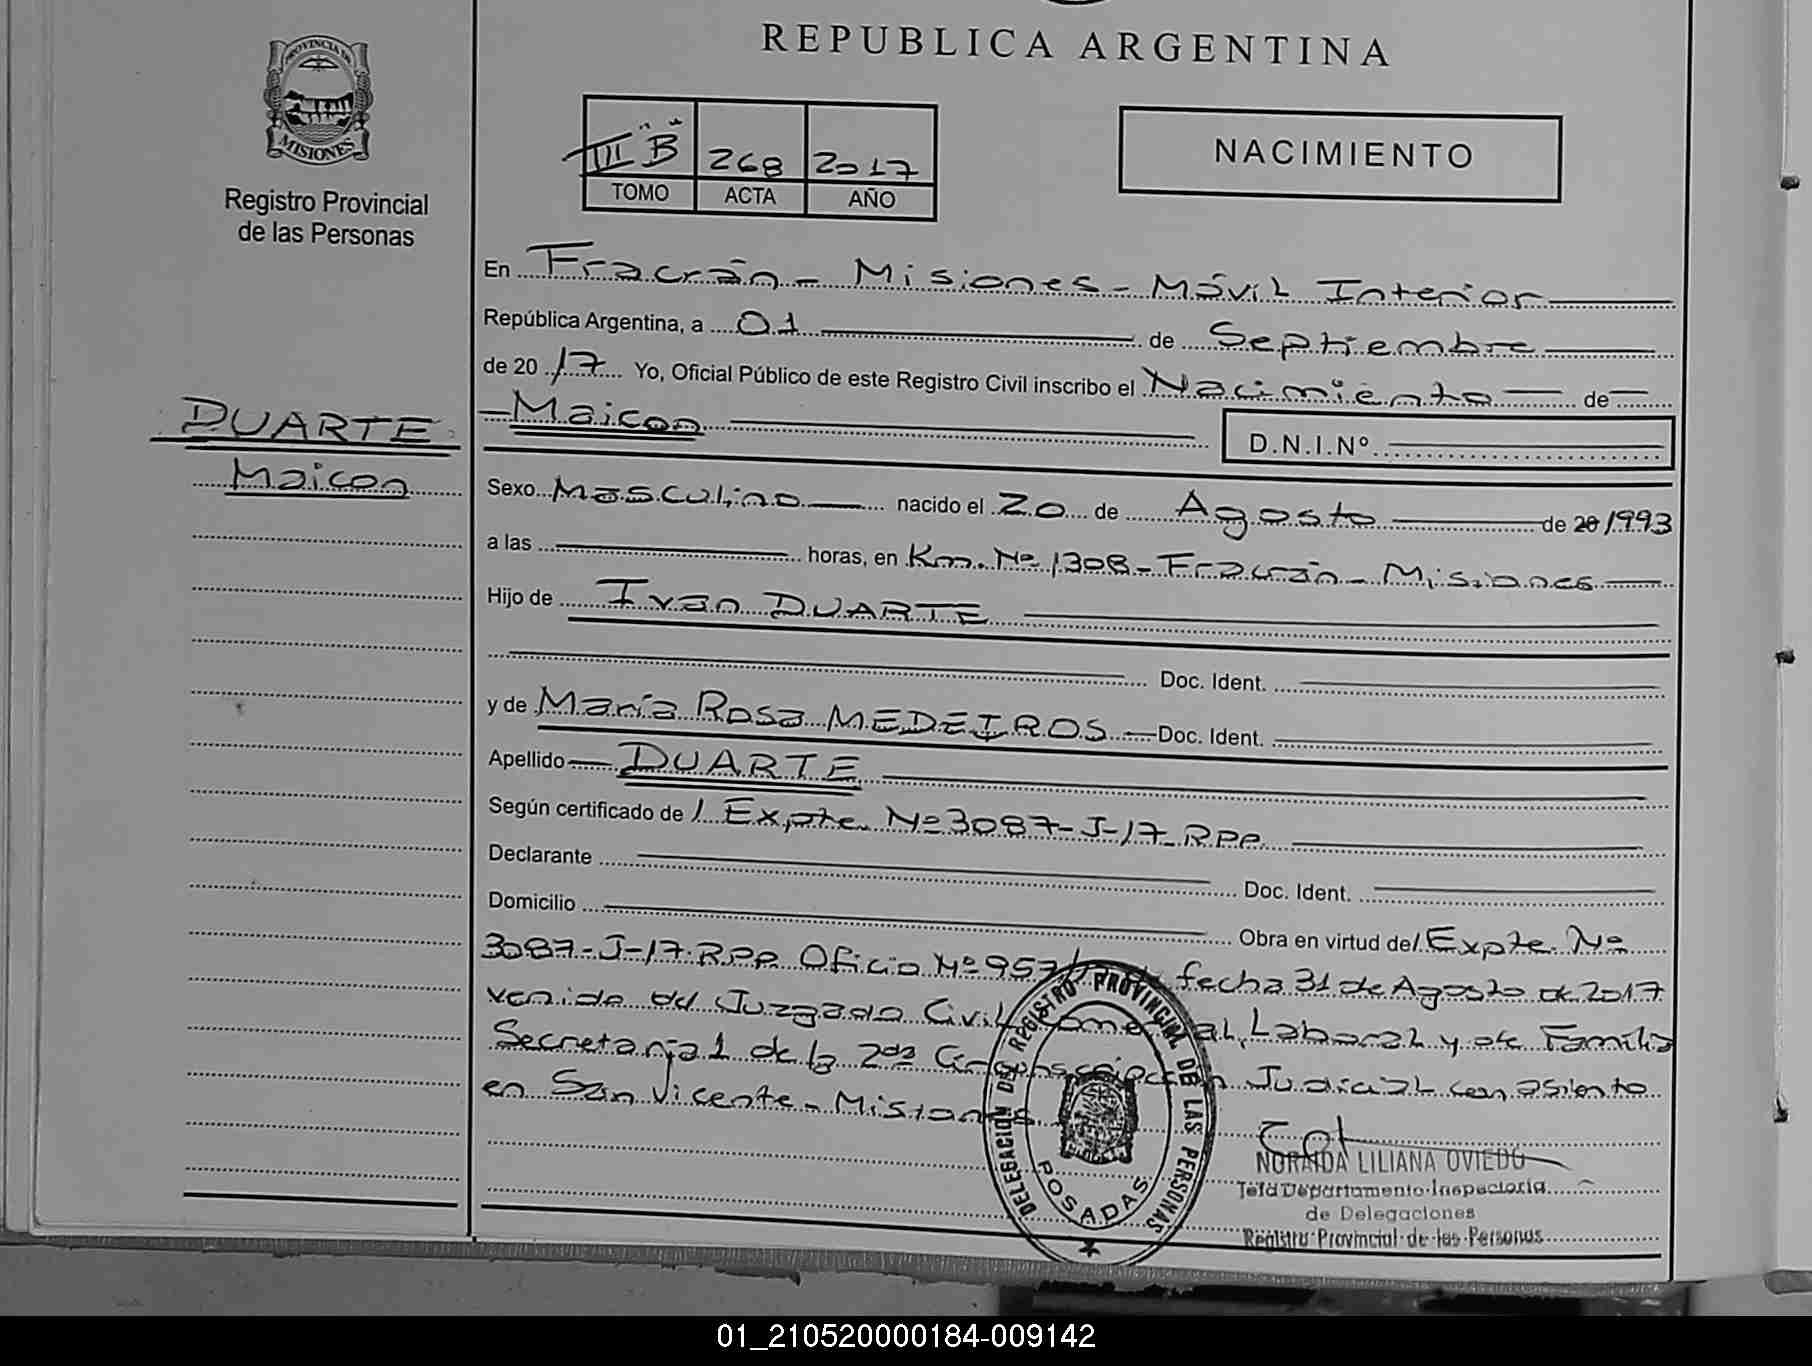 REPUBLICA ARGENTINA
PROVINCIA DE
MISIONES
Registro Provincial
de las Personas
III "B" 268 2017
TOMO ACTA AÑO
NACIMIENTO
En Fracrán - Misiones - Móvil Interior
República Argentina, a 01 de Septiembre
de 20 17 Yo, Oficial Público de este Registro Civil inscribo el Nacimiento de
DUARTE
Maicon
Maicon D.N.I.Nº
Sexo Masculino nacido el 20 de Agosto de 20 1993
a las horas, en Km. Nº 1308 - Fracrán - Misiones
Hijo de Ivan DUARTE
Doc. Ident.
y de María Rosa MEDEIROS Doc. Ident.
Apellido DUARTE
Según certificado de / Expte. Nº 3087-J-17-RPP.
Declarante Doc. Ident.
Domicilio Obra en virtud del Expte. Nº
3087-J-17-RPP Oficio Nº 957/17 de fecha 31 de Agosto de 2017
venido del Juzgado Civil, Comercial, Laboral y de Familia
Secretaría 1 de la 2da Circunscripción Judicial con asiento
en San Vicente - Misiones
DELEGACIÓN DE REGISTRO PROVINCIAL DE LAS PERSONAS
POSADAS
NORAIDA LILIANA OVIEDO
Jefa Departamento Inspectoría
de Delegaciones
Registro Provincial de las Personas
01_210520000184-009142